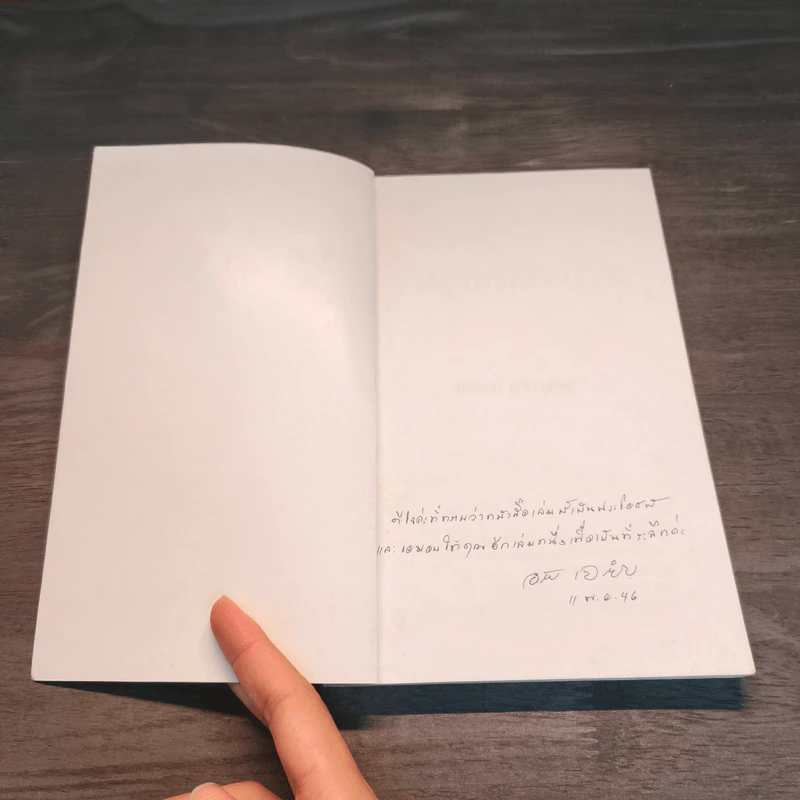 ดีใจค่ะที่ทราบว่าหนังสือเล่มนี้เป็นประโยชน์
และขอมอบให้คุณอีกเล่มหนึ่งเพื่อเป็นที่ระลึกค่ะ
11 พ.ย. 46